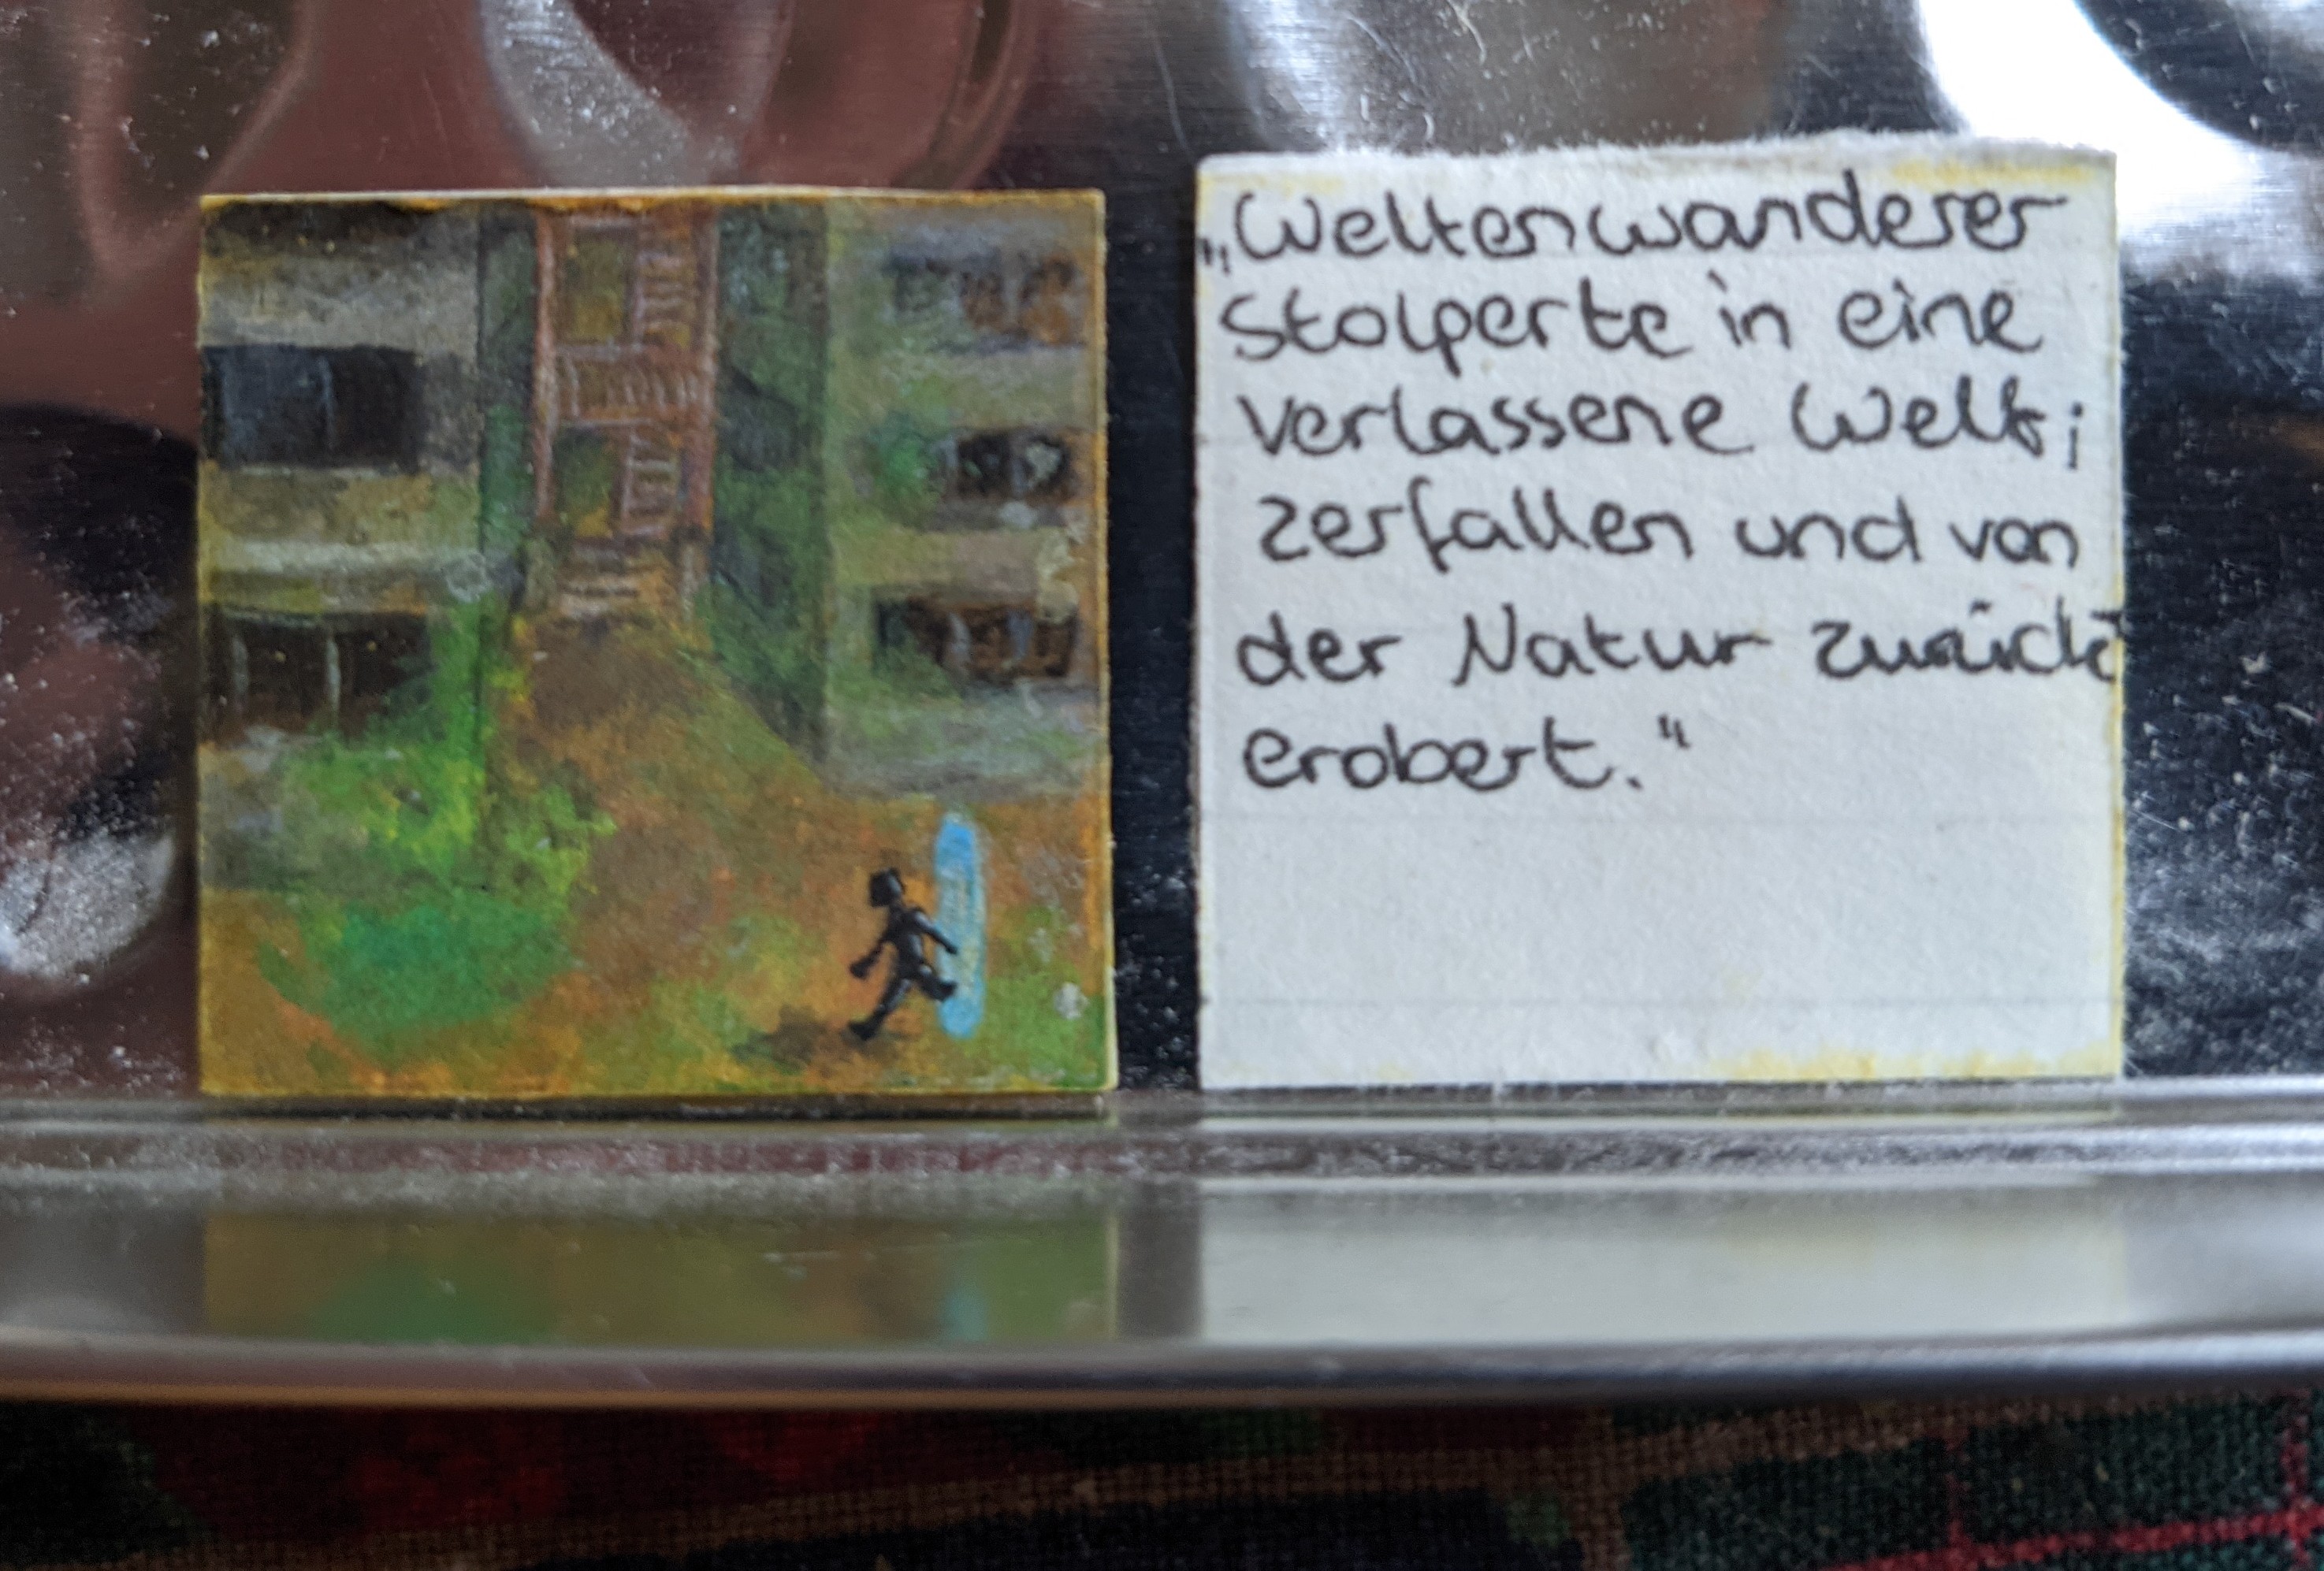 „Weltenwanderer
stolperte in eine
verlassene Welt;
zerfallen und von
der Natur zurück-
erobert.“